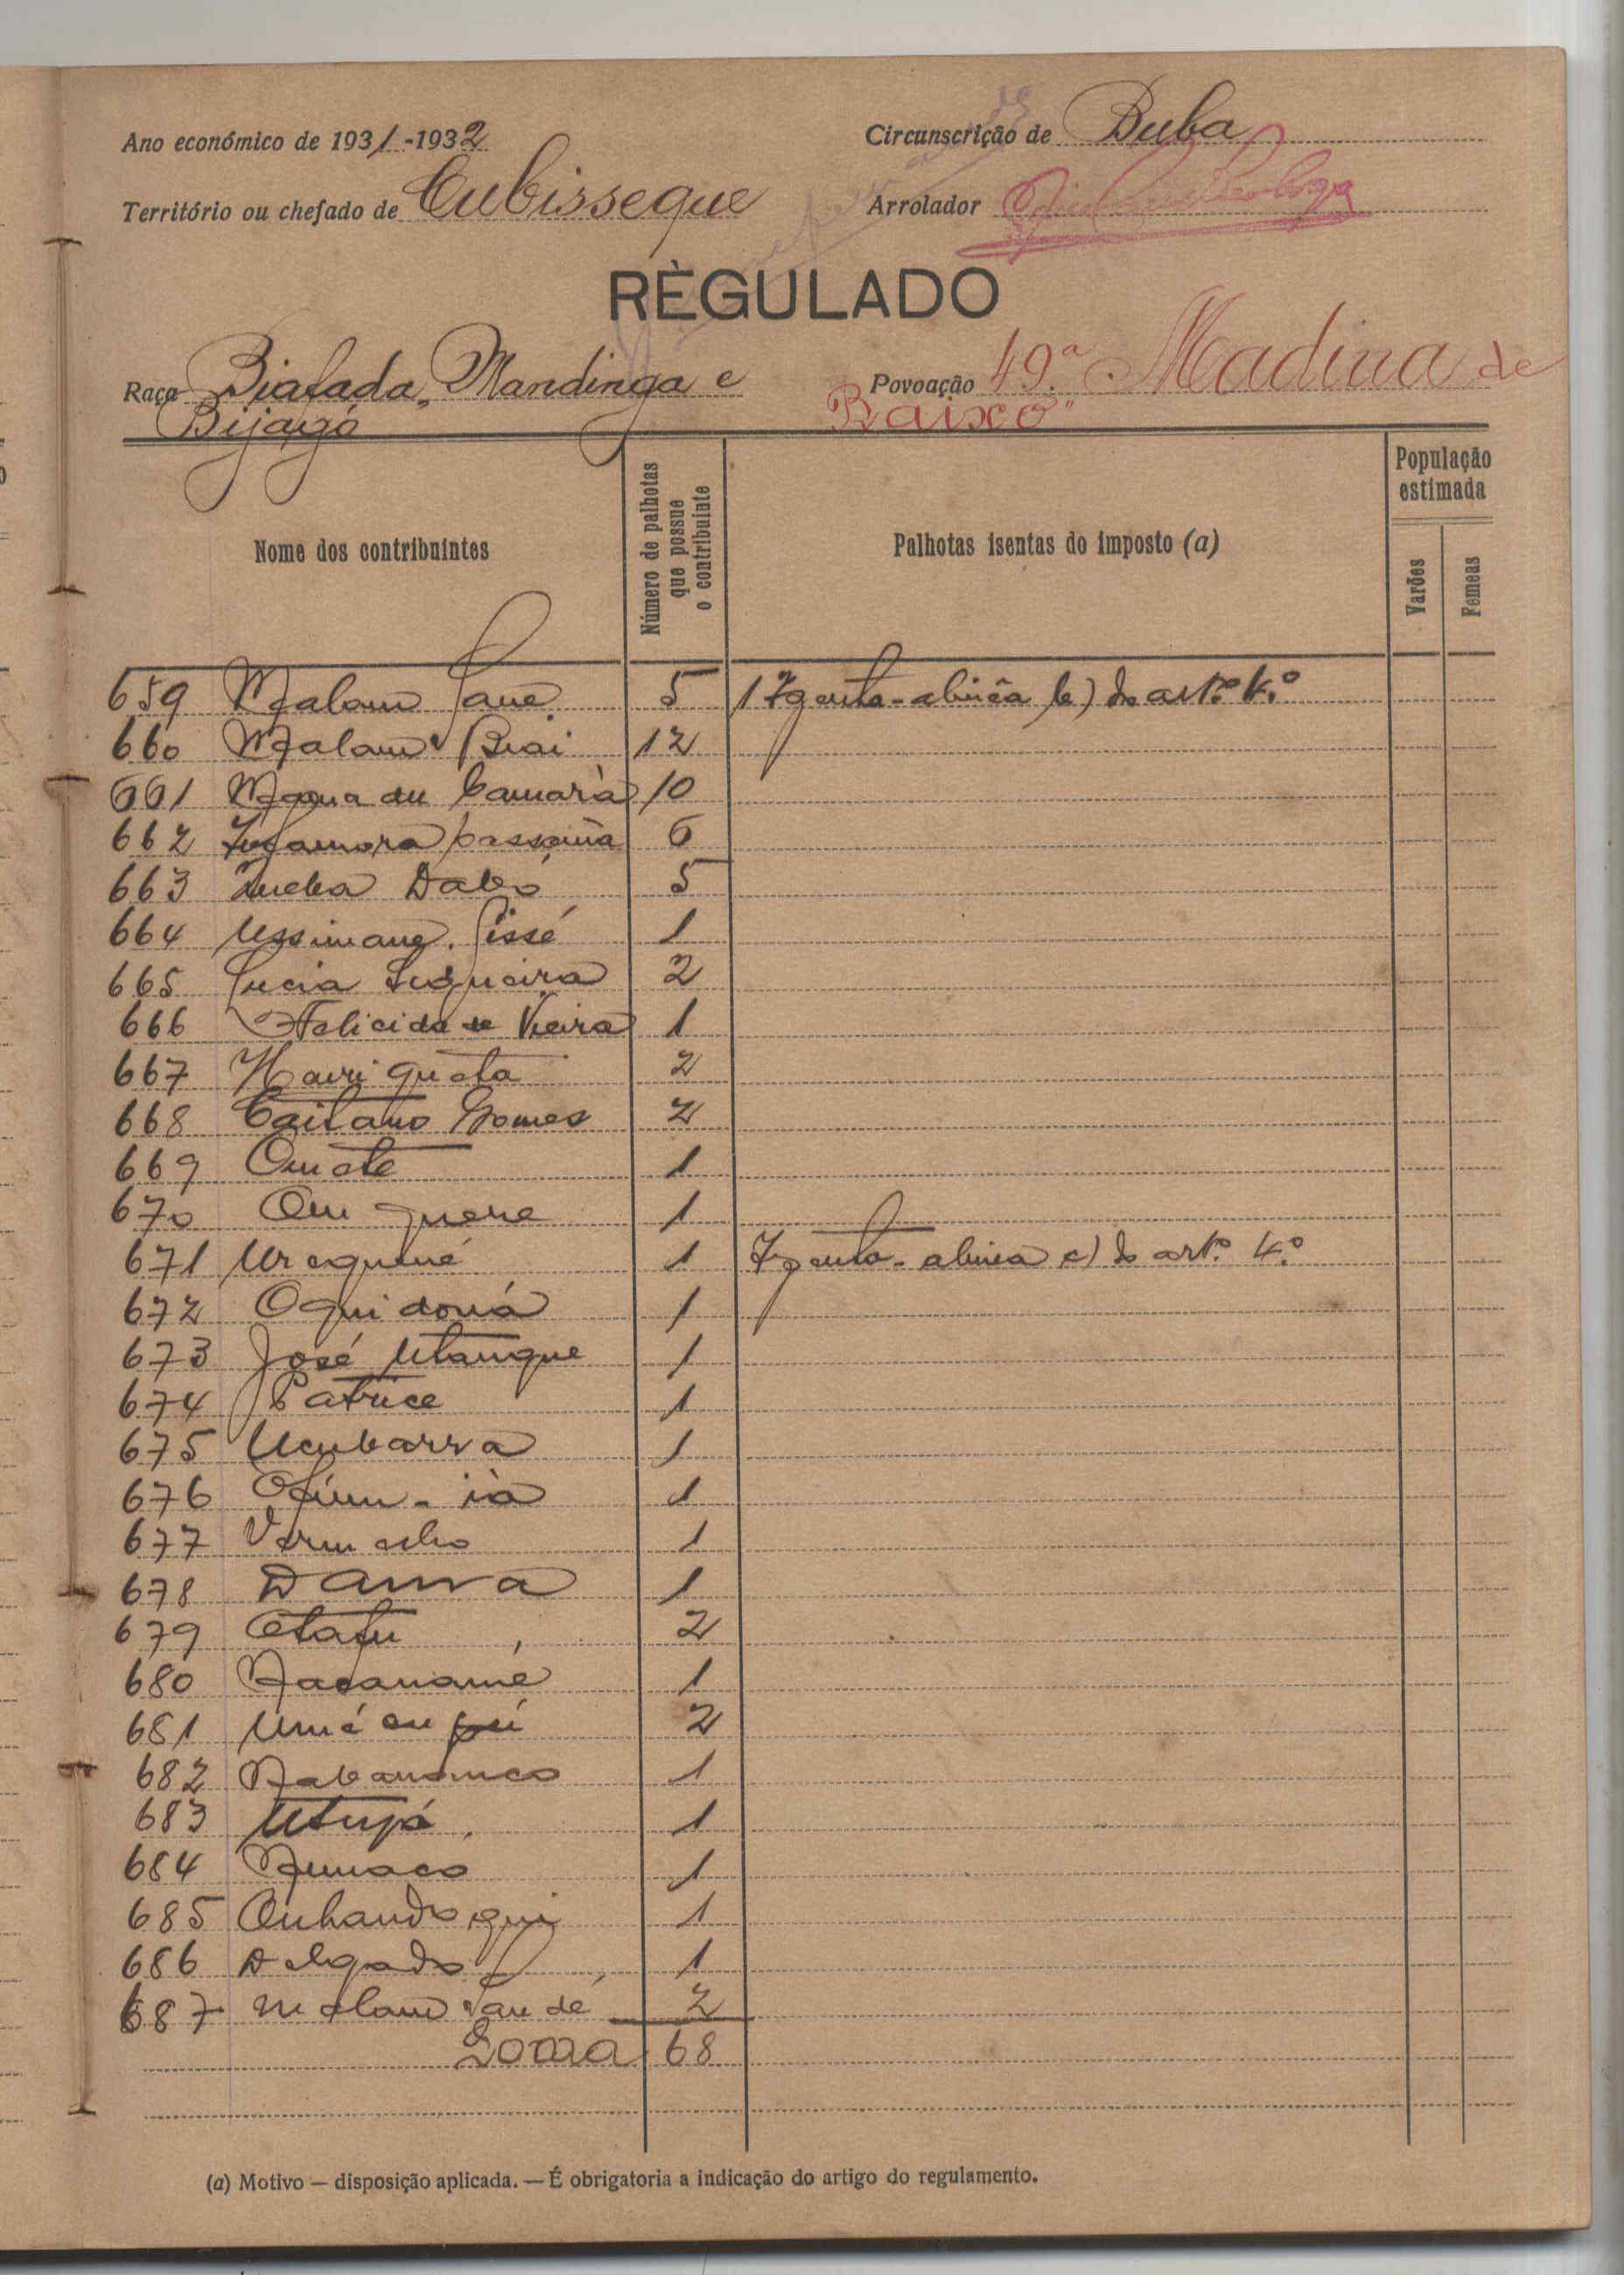 Ano económico de 1931-1932
Circunscrição de Buba
Território ou chefado de Cubisseque
Arrolador
RÈGULADO
Raça Biafada, Mandinga e
Bijagó
Povoação 49ª Madina de
Baixo"
Nome dos contribuintes
Número de palhotas que possue o contribuinte
Palhotas isentas do imposto (a)
População estimada
Varões
Femeas
659 Malam Sané 5 1 Izenta-alinêa b) do artº 4.º
660 Malam Biai 12
661 Mamadu Camarà 10
662 6
663 Dabó 5
664 Ussimane Sissé 1
665 Lucia Siqueira 2
666 Felicidade Vieira 1
667 Henriqueta 2
668 Caitano Gomes 2
669 Omote 1
670 1
671 1 Izenta-alinea c) do artº. 4.º
672 Oquidoná 1
673 José Utangue 1
674 Patrice 1
675 Ucubarra 1
676 1
677 Vermelho 1
678 Damra 1
679 2
680 1
681 2
682 1
683 Utupá 1
684 1
685 1
686 Delgado 1
687 Malam 2
Soma 68
(a) Motivo — disposição aplicada. — É obrigatoria a indicação do artigo do regulamento.